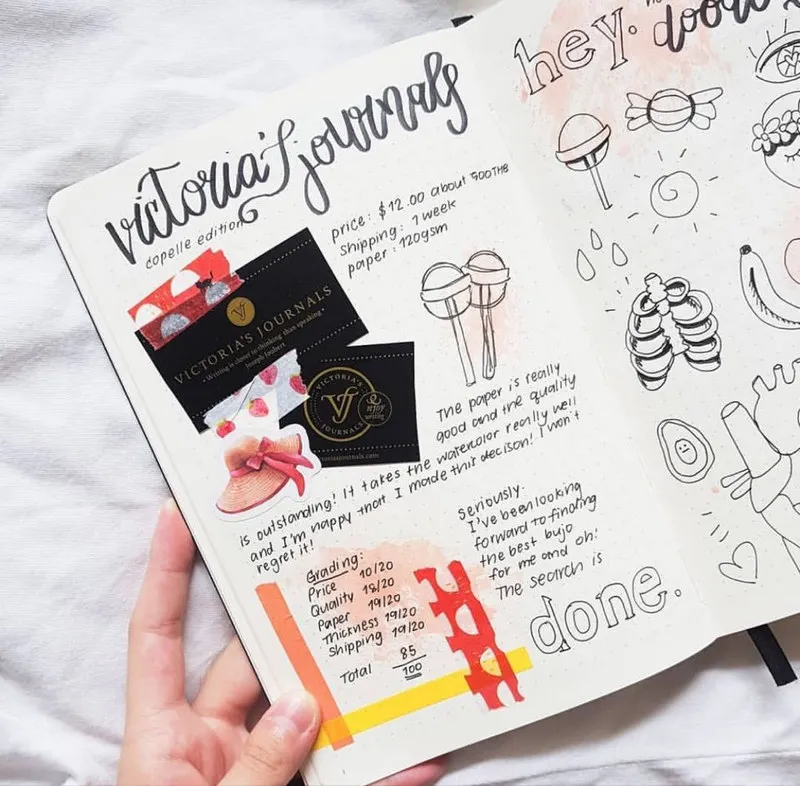 victoria's journals
copelle edition
price: $12.00 about 400THB
shipping: 1 week
paper: 120gsm
VICTORIA'S JOURNALS
• Writing is closer to thinking than speaking •
Joseph Joubert
VICTORIA'S
VJ
JOURNALS
Enjoy
writing
victoriasjournals.com
The paper is really
good and the quality
is outstanding! It takes the watercolor really well
and I'm happy that I made this decison! I won't
regret it!
Grading:
Price 10/20
Quality 18/20
Paper 19/20
Thickness 19/20
Shipping 19/20
Total 85
100
seriously.
I've been looking
forward to finding
the best bujo
for me and oh!
The search is
done.
hey.